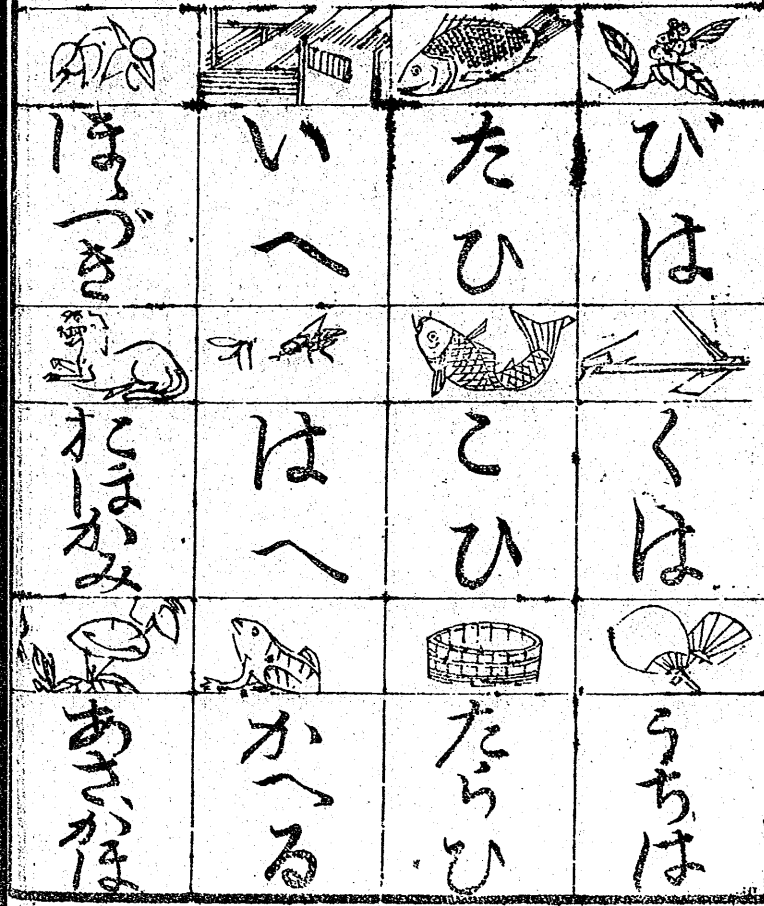 びは
くは
うちは
たひ
こひ
たらひ
いへ
はへ
かへる
ほゝづき
おほかみ
あさがほ